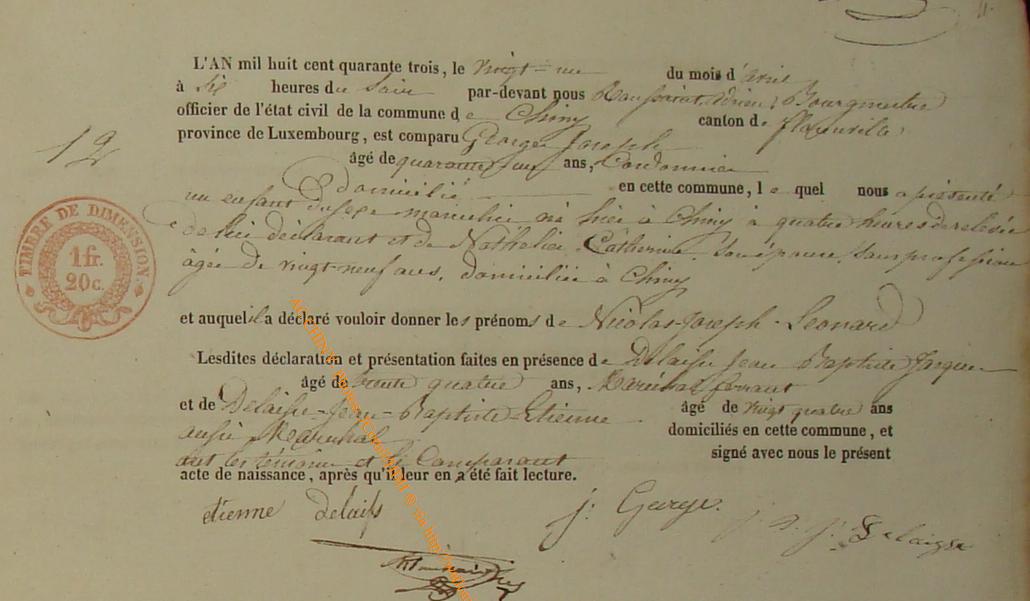 11.
L'AN mil huit cent quarante trois, le vingt-un du mois d'avril
à six heures du soir par-devant nous Adrien, Bourgmestre
officier de l'état civil de la commune de Chiny canton de florenville
province de Luxembourg, est comparu George Joseph
12
âgé de quarante ans, Cordonnier
domicilié en cette commune, lequel nous a présenté
un enfant du sexe masculin né hier à Chiny à quatre heures de relevée
de lui déclarant et de Nathelier Catherine son épouse sans profession
âgée de vingt-neuf ans, domiciliée à Chiny
TIMBRE DE DIMENSION.
1 fr.
20 c.
et auquel il a déclaré vouloir donner les prénoms de Nicolas-Joseph-Leonard
Lesdites déclaration et présentation faites en présence de Delaisse Jean Baptiste Jacques
âgé de trente quatre ans, Maréchal ferrant
et de Delaisse-Jean-Baptiste-Etienne âgé de vingt quatre ans
aussi Maréchal domiciliés en cette commune, et
ont les témoins et le Comparant signé avec nous le présent
acte de naissance, après qu'il leur en a été fait lecture.
etienne delaiss j: George. j. b. j. Delaisse